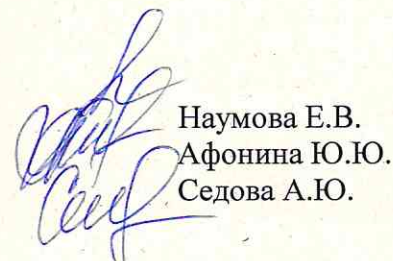 Наумова Е.В.
Афонина Ю.Ю.
Седова А.Ю.